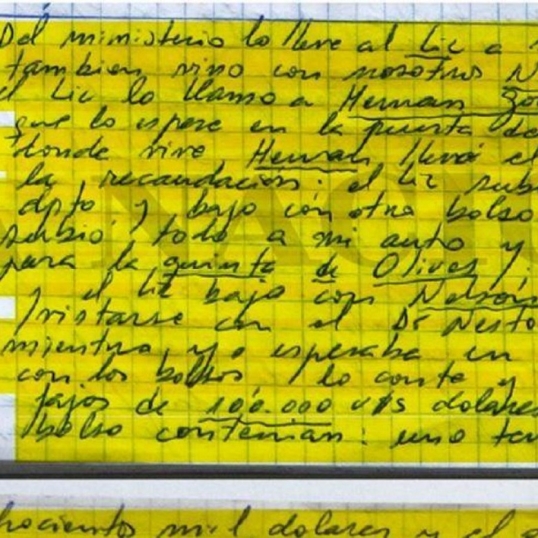 Del ministerio lo lleve al Lic a
tambien vino con nosotros N
el Lic lo llamo a Hernan Go
que lo espere en la puerta de
donde vive Hernan, llevó el
la recaudacion: el Lic sub
dpto y bajo con otro bolso
subió todo a mi auto y
para la quinta de Olivos /
y el Lic bajo con Nelson
/vistarse con el Dr Nesto
mientra yo esperaba en
con los bolsos / lo conte y
fajos de 100.000 u$s dolares
bolso contenian: uno ten
hocientos mil dolares y el